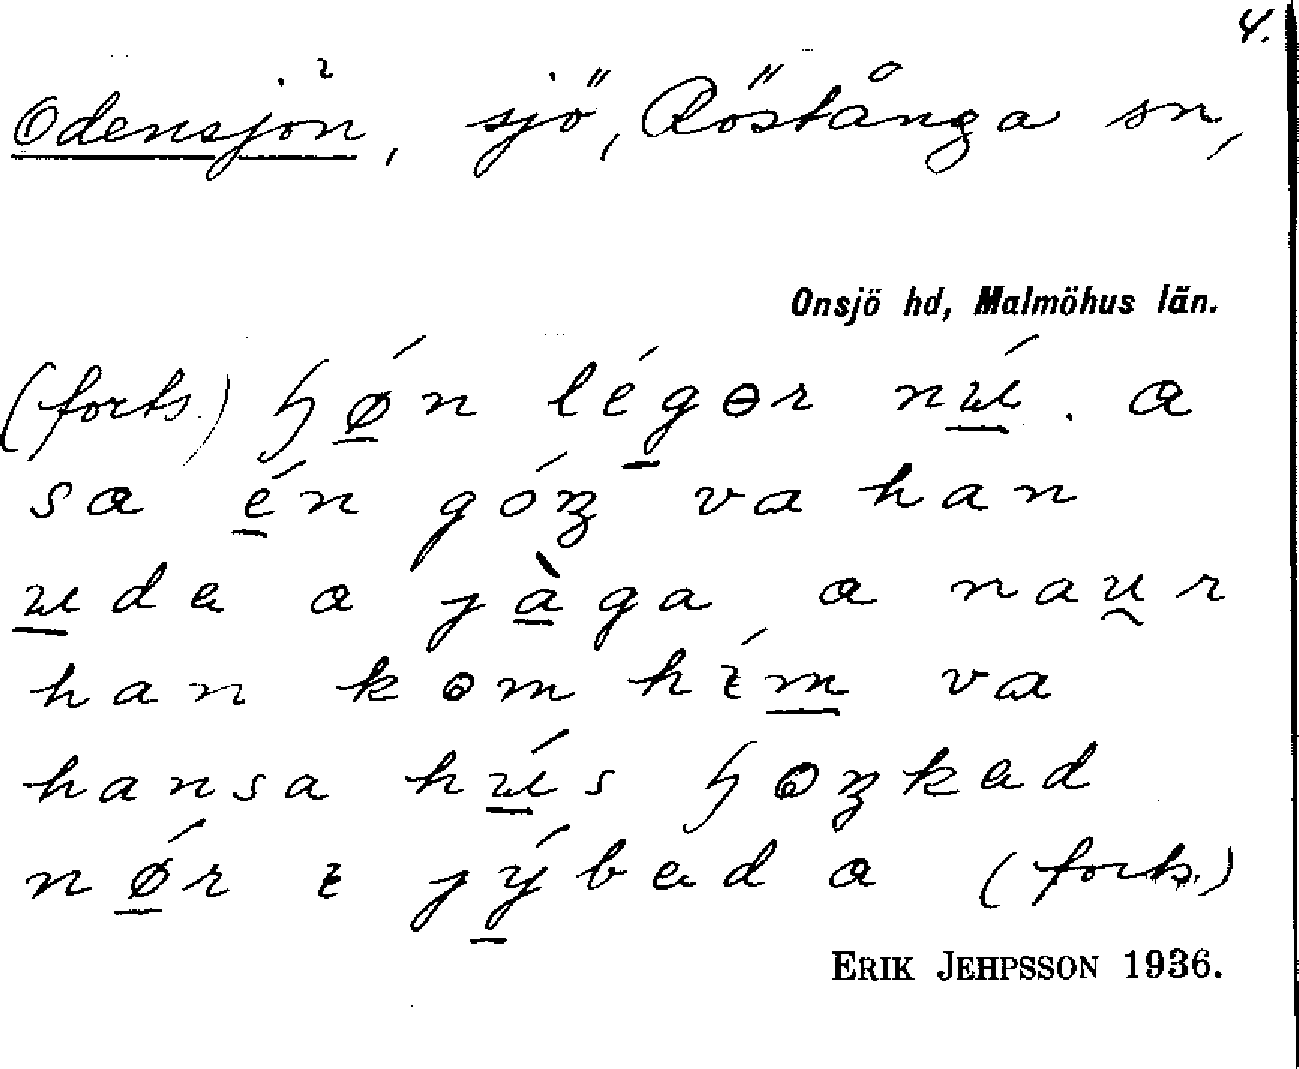 4.
Odensjön, sjö, Röstånga sn,
Onsjö hd, Malmöhus län.
(forts.) ꞕǿ̲n lég̲ɵr nú̲̲. a
sa é̲n góꭊ va han
u̲da a jà̲ga a nau̯r
han kɵm hím̲ va
hansa hú̲s ꞕɵꭊkad
nǿ̲r ɪ jý̲bada (forts.)
ERIK JEHPSSON 1936.